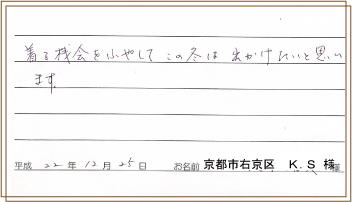 着る機会をふやして この冬は 出かけたいと思い
ます。
平成 22 年 12 月 25 日 お名前 京都市右京区 K.S 様 様